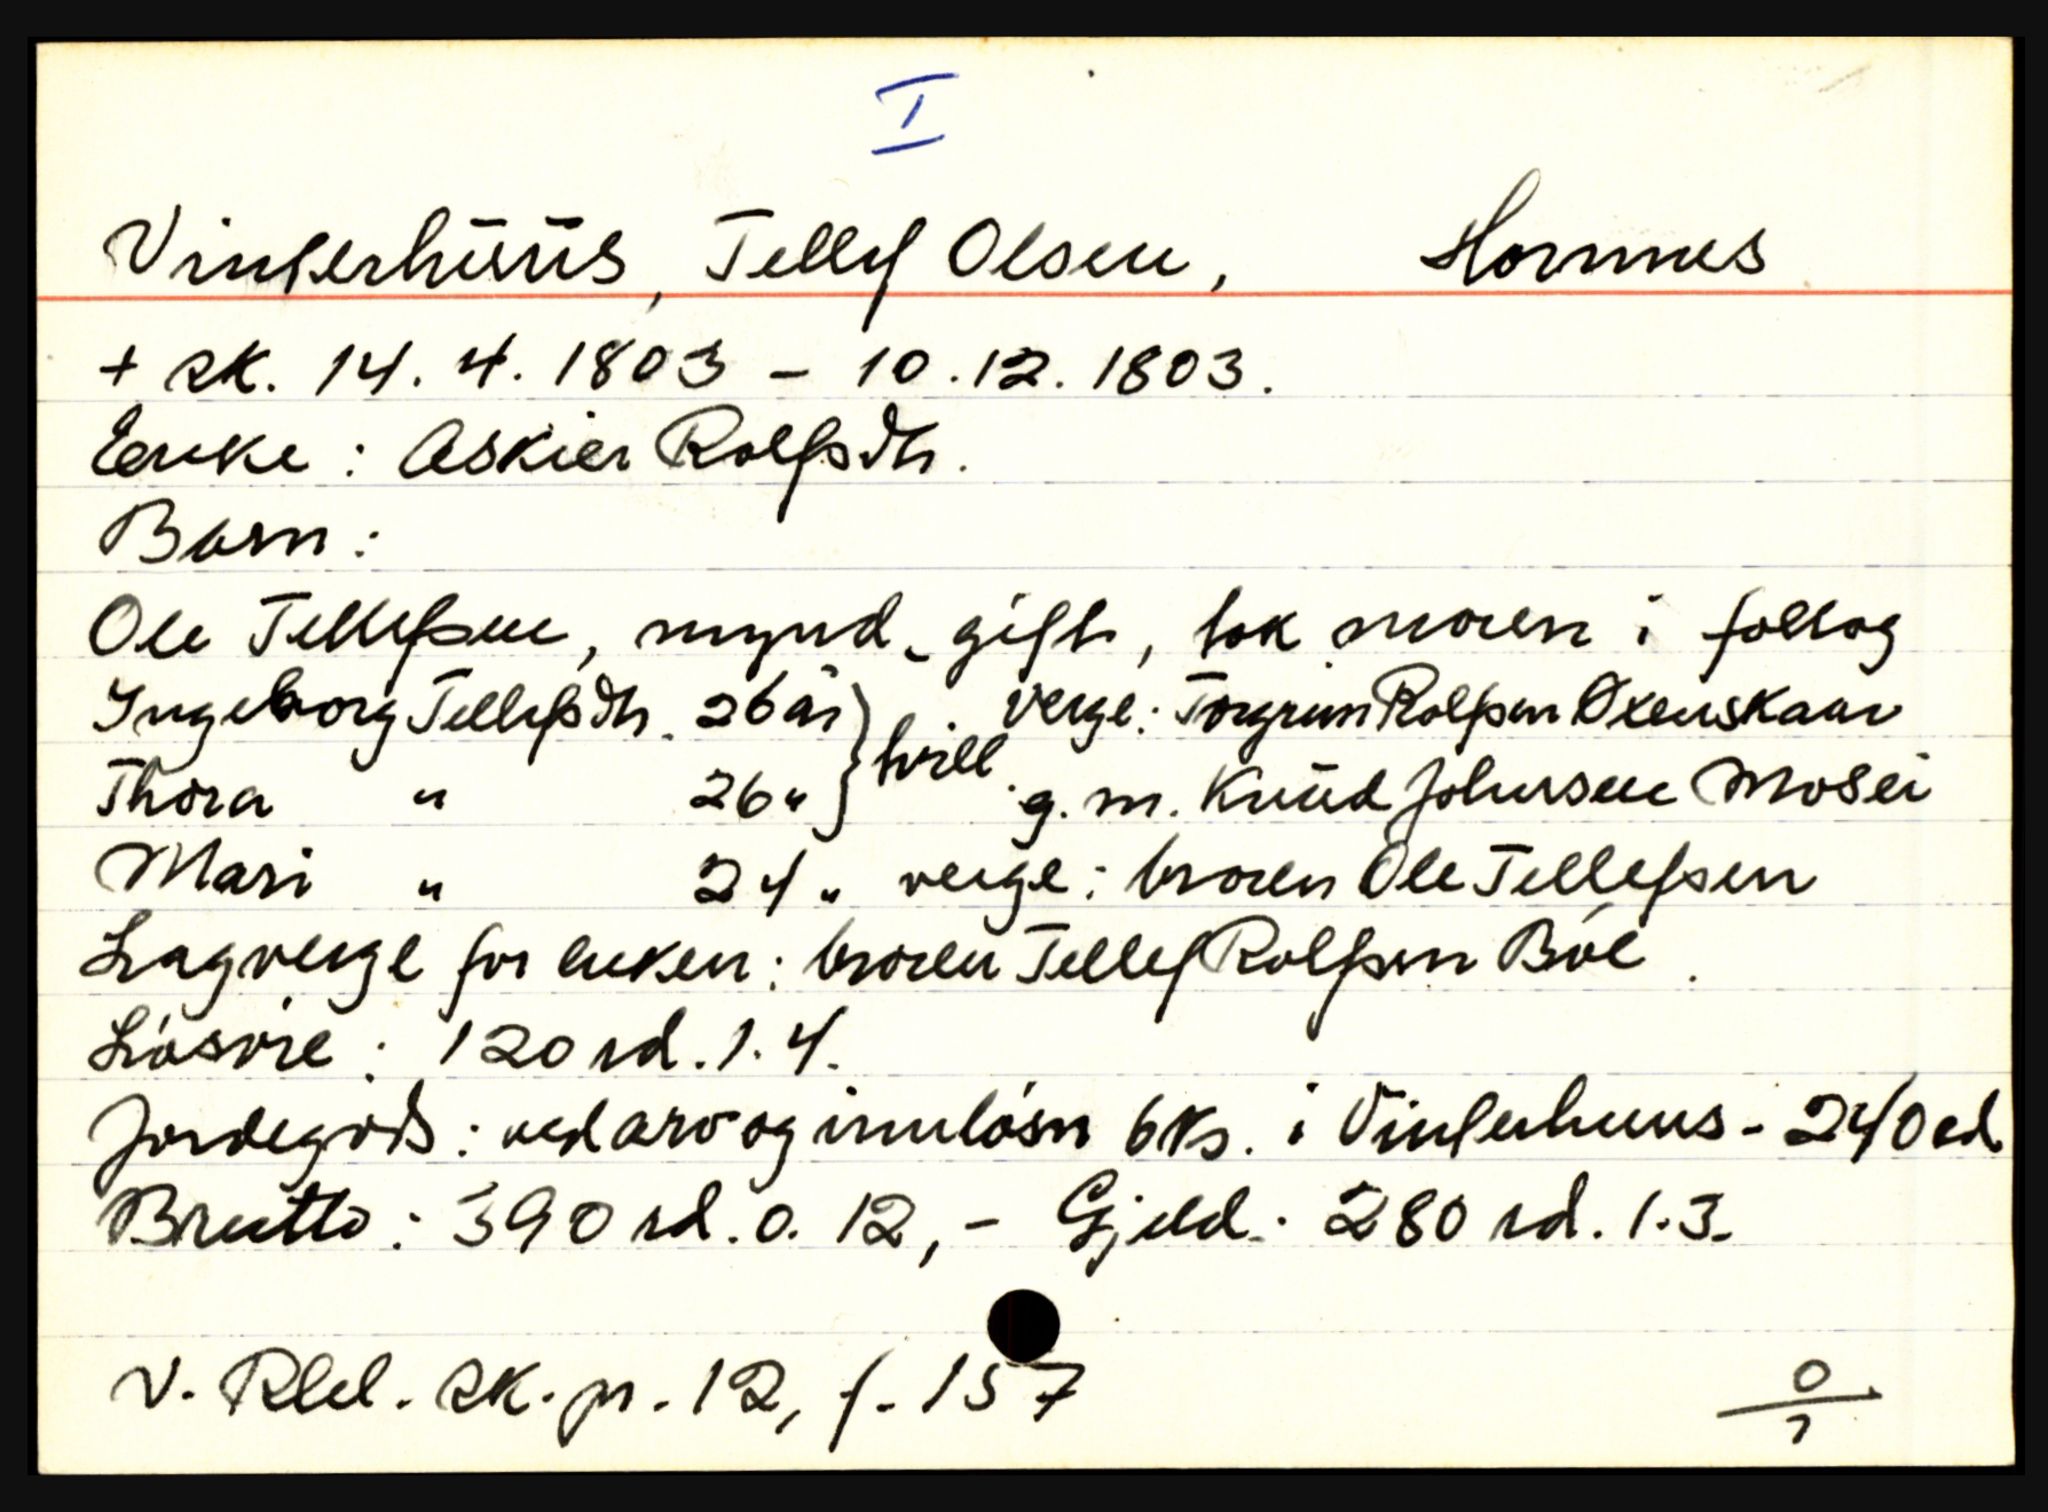 I
Vinterhuus, Tellef Olsen, Hornnes
+ sk. 14.4.1803 - 10.12.1803.
Enke: Askier Rolfsdtr.
Barn:
Ole Tellefsen, mynd. gift, tok moren i follog
Ingeborg Tellefsdtr. 26 år } tvill. verge: Torgrim Rolfsen Oxenskaar
Thora " 26 " } g. m. Knud Johnsen Mosei
Mari " 24 " verge: broren Ole Tellefsen
Lagverge for enken: broren Tellef Rolfsen Böe.
Lösöre: 120 rd. 1. 4.
Jordegods: ved arv og innlösn 6 ks. i Vinterhuus - 240 rd.
Brutto: 390 rd. 0. 12, - Gjeld: 280 rd. 1. 3.
V. Rbd. sk. pr. 12, f. 157
0
1